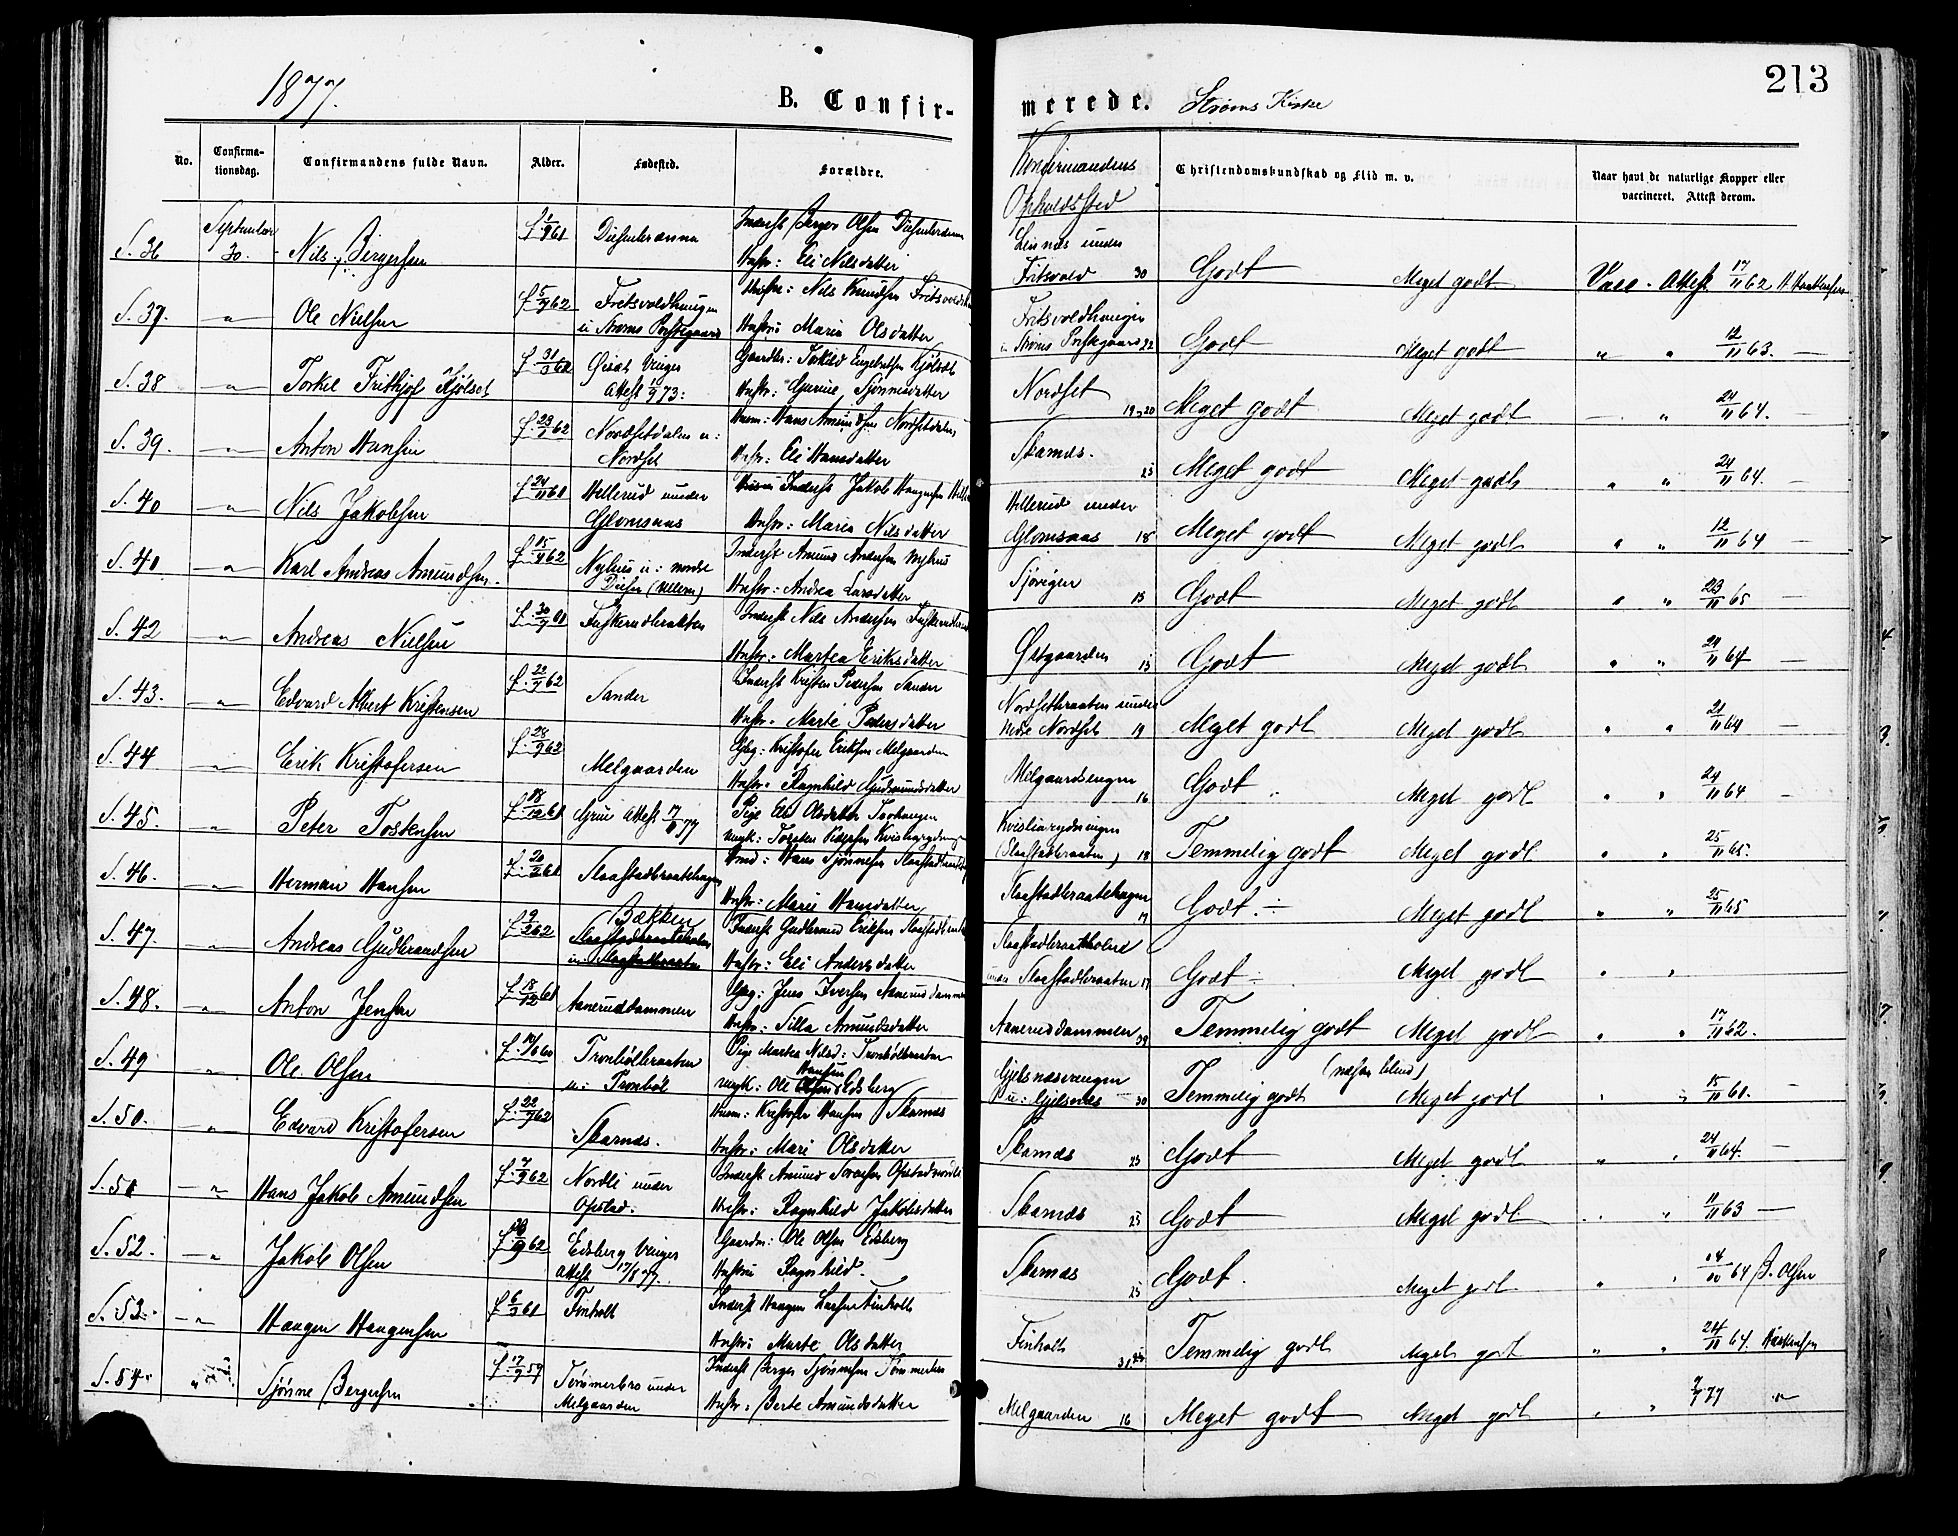 1877.
B. Confir-
merede.
Strøms Kirke
213
No.
Confirma-
tionsdag.
Confirmandens fulde Navn.
Alder.
Fødested.
Forældre.
Konfirmandens
Opholdssted
Christendomskundskab og Flid m. v.
Naar havt de naturlige Kopper eller
vaccineret. Attest derom.
S. 36 September 30. Nils Bergersen f. 1/9 61 Disenbrænna
Inderst Berger Olsen Disenbrænna
Hustr: Eli Nilsdatter
under
Fritsvold 30 Godt Meget godt Vacc. Attest 17/11 62
S. 37. " Ole Nielsen f. 5/9 62 Fritsvoldhaugen
u Strøms Præstegaard
Nils Knudsen
Hustru Maria Olsdatter
Fritsvoldhaugen
u Strøms Præstegaard 22 Godt Meget godt " " 12/11 63. —
S. 38 " Torkel Frithjof Kjølset f. 31/3 62
Vinger
Attest 1/9 73:
Gaardbr: Torkild Engebretsen Kjølset
Hustr: Gurine Sjønnesdatter
Nordset 19,20 Meget godt Meget godt — " 24/11 64. —
S. 39. " Anton Hansen f. 23/1 62 Nordsetdalen u:
Nordset
Husm: Hans Amundsen Nordsetdalen
Hustr: Eli Hansdatter
Skarnæs. 25 Meget godt Meget godt " " 24/11 64. —
S. 40 " Nils Jakobsen f. 24/11 61 Hellerud under
Glomsaas
Inderst Jakob Haugersen
Hustr: Maria Nilsdatter
Hellerud under
Glomsaas 18 Meget godt Meget godt " " 12/11 64 —
S. 41 " Karl Andreas Amundsen. f. 15/4 62 Nyhus u: nordre
Disen (Ullern)
Inderst Amund Andersen Nyhus
Hustr: Andrea Larsdatter
Sjøvigen 15 Godt Meget godt " " 23/11 65 —
S. 42 " Andreas Nielsen f. 30/9 61
Inderst Nils Andersen
Hustr: Martea Eriksdatter
Østgaarden 15 Godt Meget godt " " 24/11 64 —
S. 43. " Edvard Albert Kristensen f. 20/9 62 Sander
Inderst Kristen Pedersen Sander
Hustr. Marte Pedersdatter
Nordsetbraaten under
Nedre Nordset 19 Meget godt Meget godt " " 21/11 64 —
S. 44 " Erik Kristofersen f. 28/9 62 Melgaarden
Gbg: Kristofer Eriksen Melgaarden
Hustr. Ragnhild Gudmundsdatter
Melgaardsengen 16 Godt Meget godt " " 24/11 64 —
S. 45. " Peter Tostensen f. 18/12 61 Grue Attest 17/8 77
Pige Eli Olsdatter
ungk: Torsten Pedersen Kvisliarydning
Kvisliarydningen
(Slaastadbraaten) 18 Temmelig godt Meget godt " " 25/11 65.
S. 46. " Herman Hansen f. 20/2 61 Slaastadbraatehagen
Hans Sjønnesen
Hustr: Mari Hansdatter
Slaastadbraatehagen 17 Godt. ÷ Meget godt " " 25/11 65
S. 47. " Andreas Gudbrandsen f. 9/3 62 Bækken
Inderst Gudbrand Eriksen
Hustr: Eli Andersdatter
under Slaastadbraaten 17 Godt ÷ Meget godt " "
S. 48. " Anton Jensen f. 18/12 61 Aaneruddammen
Gbg: Jens Iversen Aaneruddammen
Hustr: Silla Amundsdatter
Aaneruddammen 39 Temmelig godt Meget godt " " 17/11 62.
S. 49 " Ole Olsen f. 14/6 60 Tronbølbraaten
u: Tronbøl
Pige Martea Nilsd: Tronbølbraaten
Hansen
ungk: Ole Olsen Edsberg
Gjelsnæsvangen
u: Gjelsnæs 30 Temmelig godt (næsten blind) Meget godt " " 15/11 61.
S. 50. " Edvard Kristofersen f. 22/9 62 Skarnæs.
Husm: Kristofer Hansen Skarnæs
Hustr: Mari Olsdatter
Skarnæs 25 Godt Meget godt " " 24/11 64. —
S. 51 " Hans Jakob Amundsen f. 7/9 62 Nordli under
Opstad.
Inderst Amund Opstadnordli
Hustr: Ragnhild Jakobsdatter
Skarnæs 25 Godt Meget godt " " 11/11 63 —
S. 52. " Jakob Olsen f. 20/9 62 Edsberg Vinger
Attest 17/8 77.
Gaardm: Ole Olsen Edsberg
Hustru Ragnhild.
Skarnæs 25 Godt. Meget godt " " 4/10 64 B. Olsen
S. 53. " Haagen Haagensen f. 6/3 61 Finholt
Inderst Haagen Larsen Finholt
Hustru Marte Olsdatter
Finholt Temmelig godt Meget godt " " 24/11 64.
S. 54. " Sjønne Bergersen f. 17/9 59 Tømmerbro under
Melgaarden
Inderst Berger Sjønnesen Tømmerbro
Hustr: Berte Amundsdatter
Melgaarden 16 Meget godt Meget godt " " 2/7 77 "